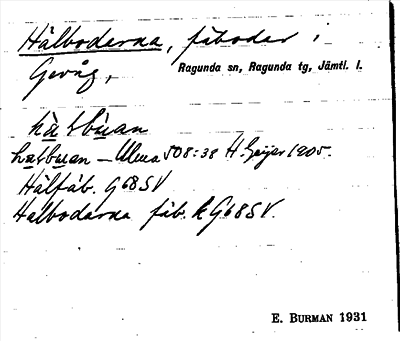 Hälbodarna, fäbodar i
Gevåg, Ragunda sn, Ragunda tg, Jämtl. l.
hàlbùan
halbuan – Ulma 508:38 H. Geijer 1905.
Hälfäb. G68SV
Hälbodarna fäb. k G68SV.
E. BURMAN 1931